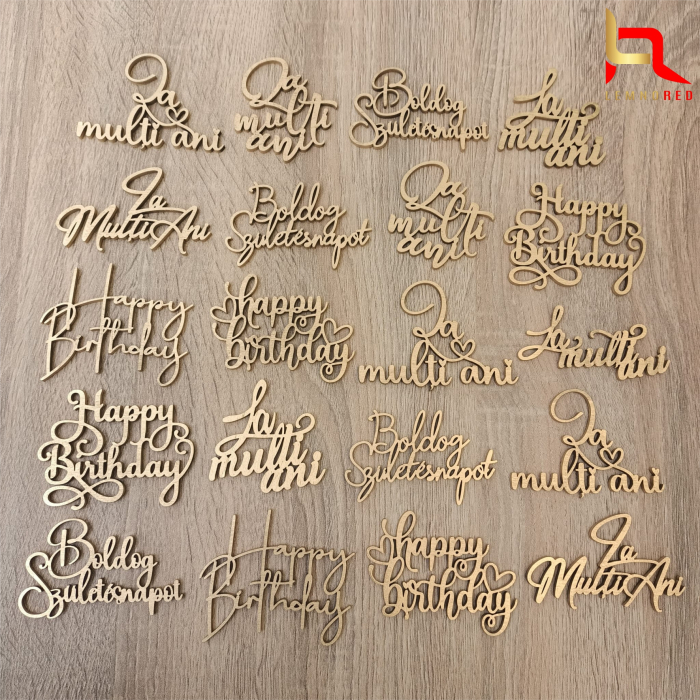 La
mulți ani
La
multi
ani
Boldog
Születésnapot
La
multi
ani
La
Mulți Ani
Boldog
Születésnapot
La
multi
ani
Happy
Birthday
Happy
Birthday
happy
birthday
La
mulți ani
La multi
ani
Happy
Birthday
La
multi
ani
Boldog
Születésnapot
La
mulți ani
Boldog
Születésnapot
Happy
Birthday
happy
birthday
La
Mulți Ani